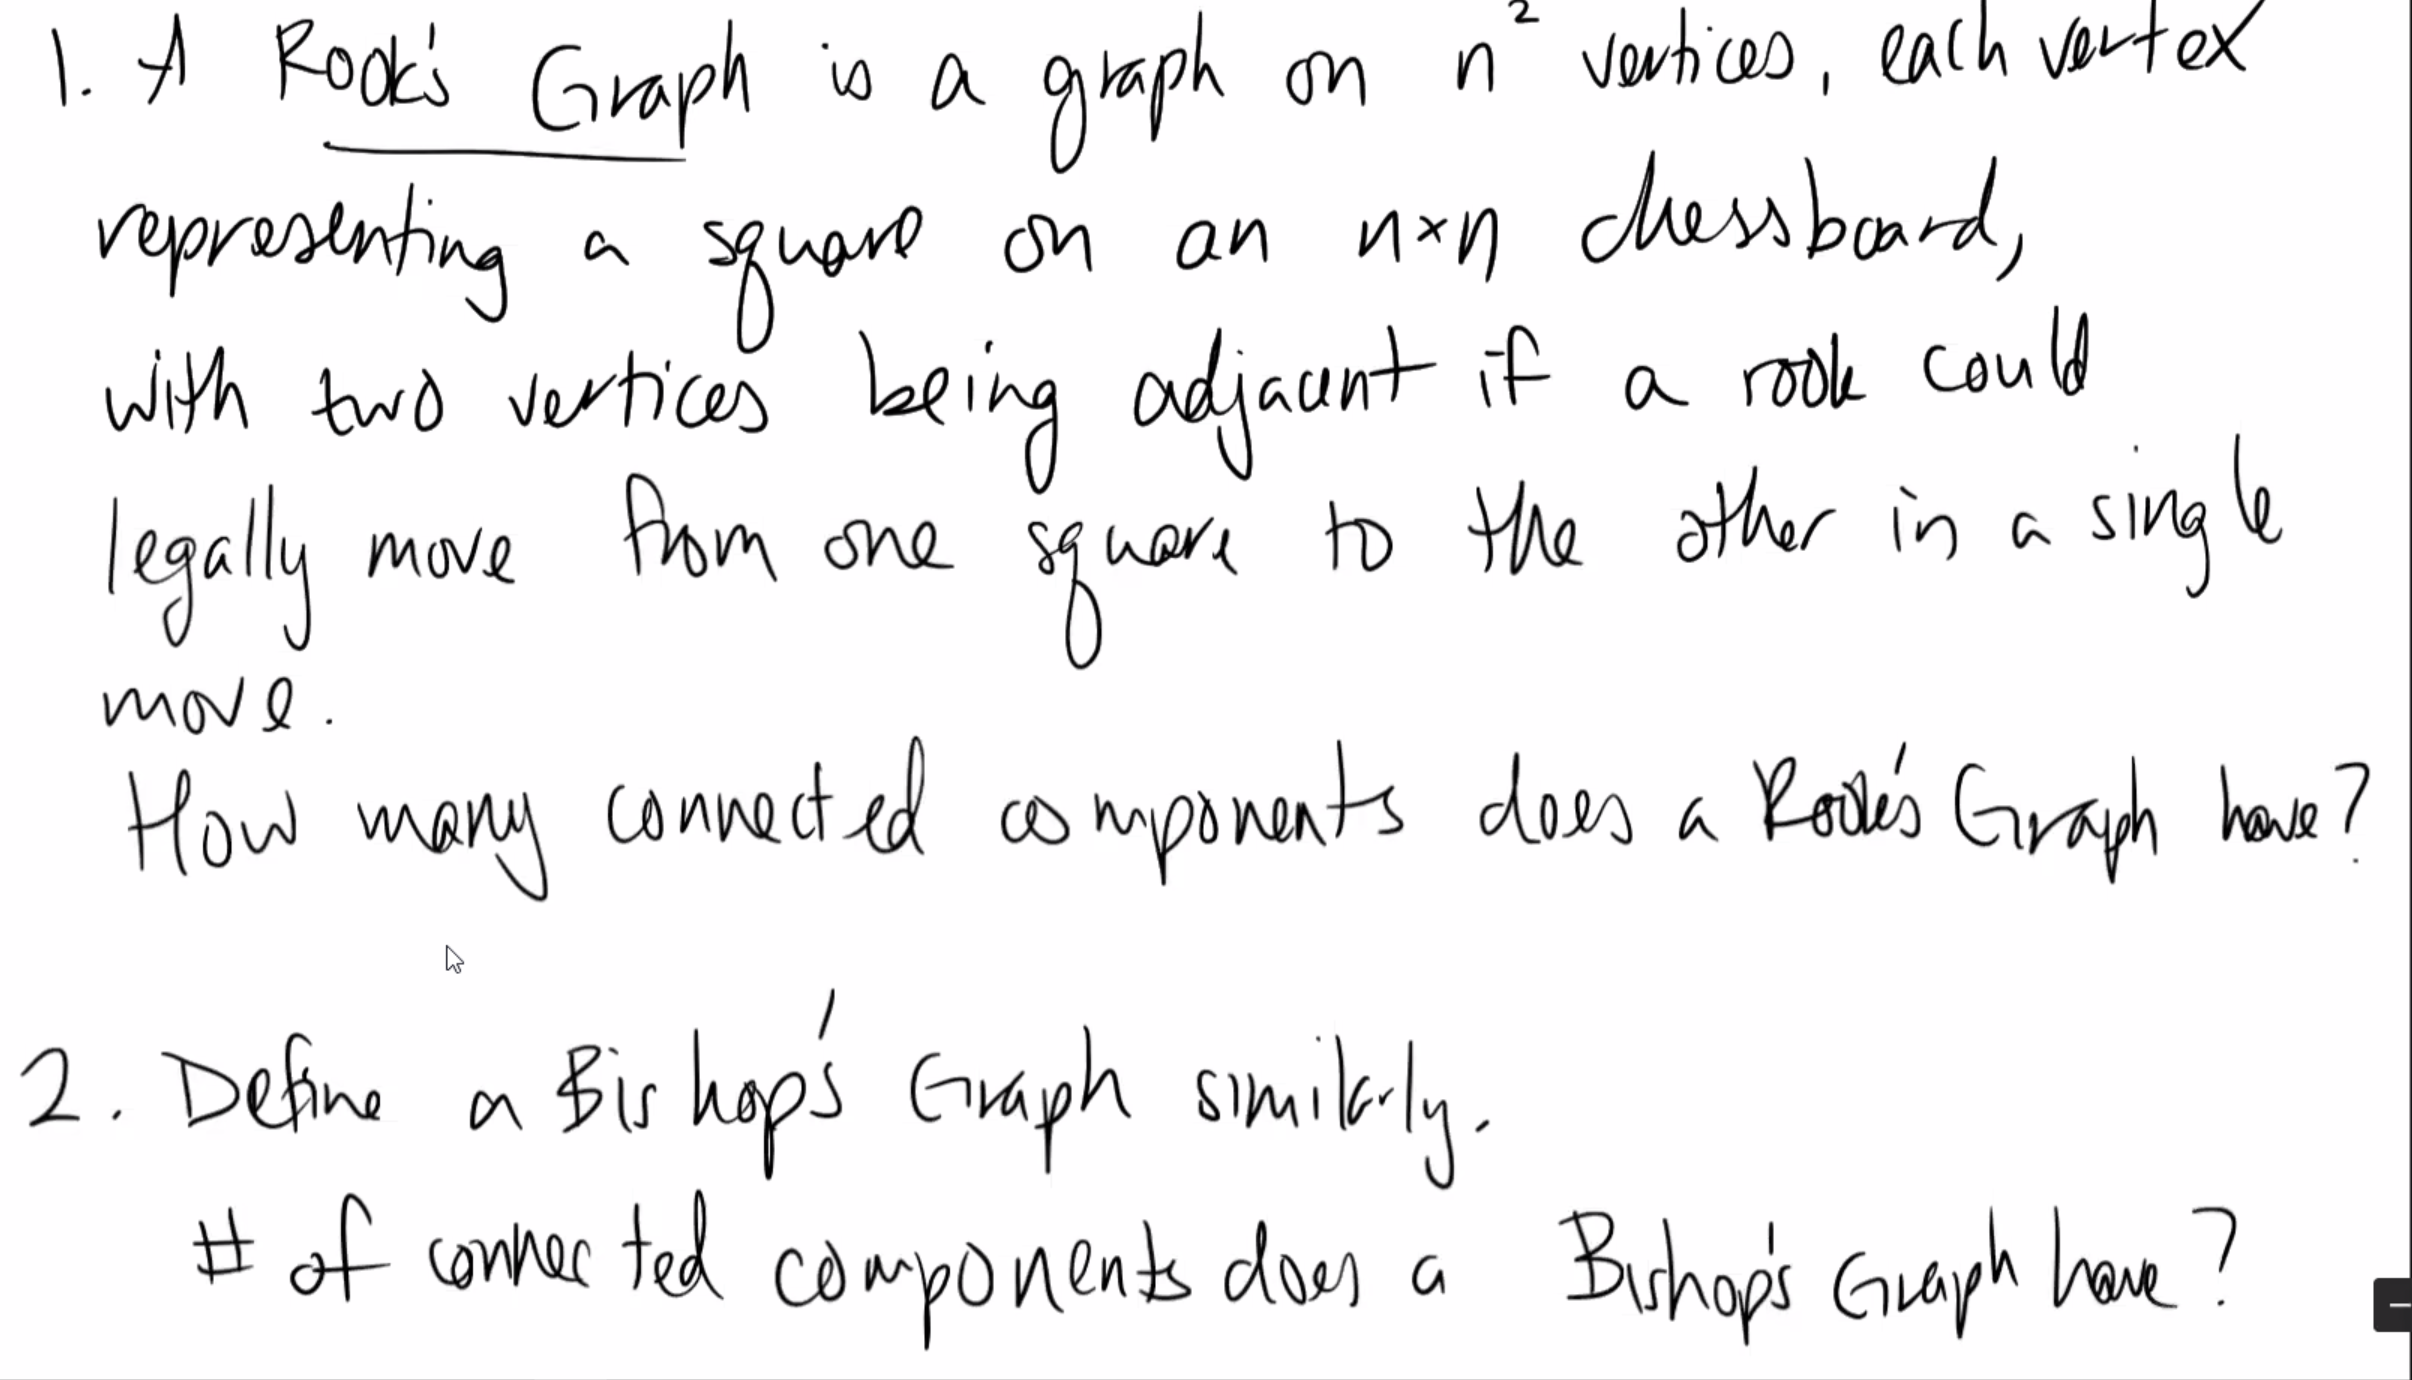 1. A Rook's Graph is a graph on n² vertices, each vertex
representing a square on an n×n chessboard,
with two vertices being adjacent if a rook could
legally move from one square to the other in a single
move.
How many connected components does a Rook's Graph have?
2. Define a Bishop's Graph similarly.
# of connected components does a Bishop's Graph have?